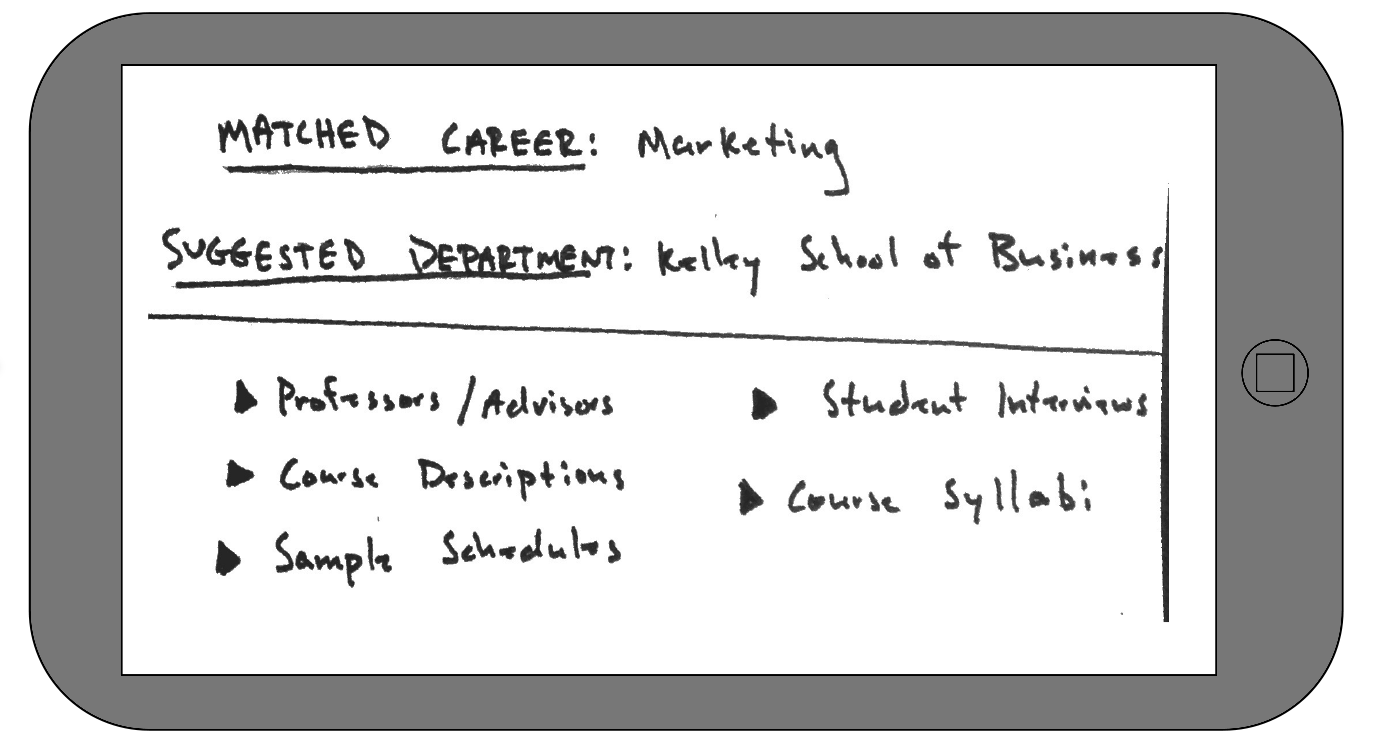 MATCHED CAREER: Marketing
SUGGESTED DEPARTMENT: Kelley School of Business
Professors/Advisors
Course Descriptions
Sample Schedules
Student Interviews
Course Syllabi